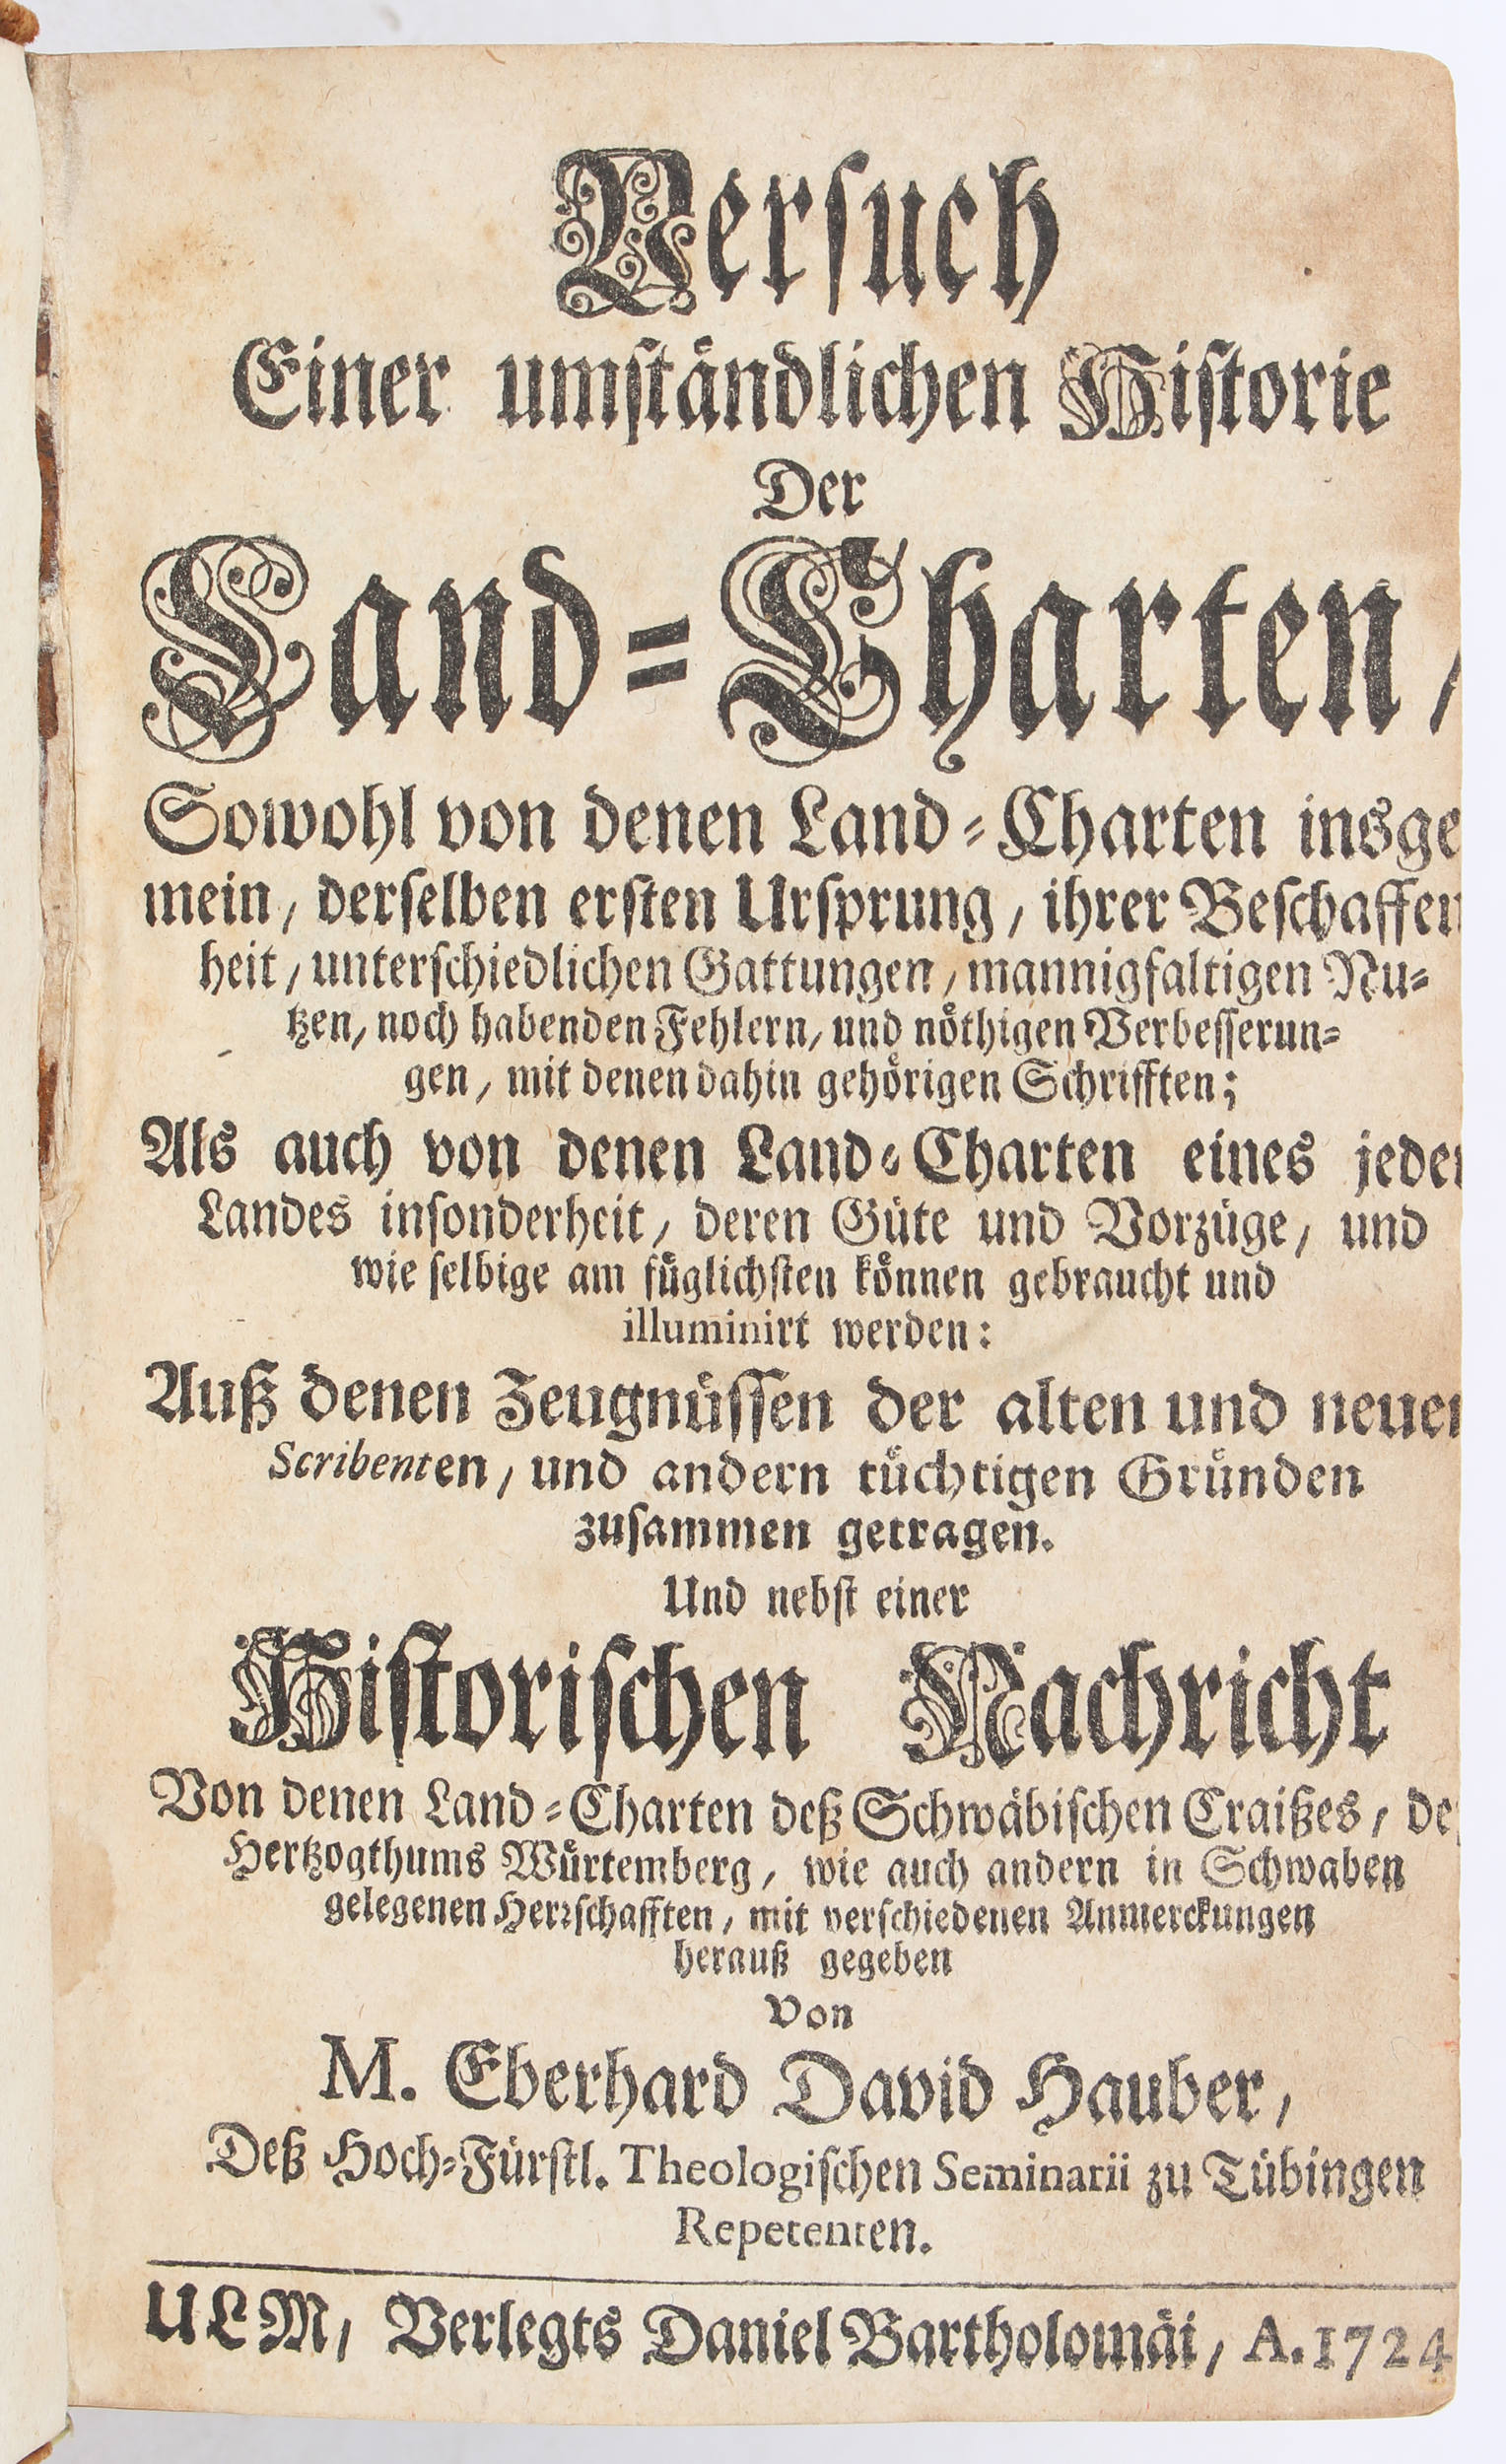 Versuch
Einer umständlichen Historie
Der
Land=Charten/
Sowohl von denen Land=Charten insge
mein/ derselben ersten Ursprung/ ihrer Beschaffen
heit/ unterschiedlichen Gattungen/ mannigfaltigen Nu=
tzen/ noch habenden Fehlern/ und nöthigen Verbesserun=
gen/ mit denen dahin gehörigen Schrifften;
Als auch von denen Land=Charten eines jeden
Landes insonderheit/ deren Güte und Vorzüge/ und
wie selbige am füglichsten können gebraucht und
illuminirt werden:
Auß denen Zeugnüssen der alten und neuen
Scribenten/ und andern tüchtigen Gründen
zusammen getragen.
Und nebst einer
Historischen Nachricht
Von denen Land=Charten deß Schwäbischen Craißes/ de
Hertzogthums Würtemberg/ wie auch andern in Schwaben
gelegenen Herrschafften/ mit verschiedenen Anmerckungen
herauß gegeben
von
M. Eberhard David Hauber/
Deß Hoch=Fürstl. Theologischen Seminarii zu Tübingen
Repetenten.
ULM/ Verlegts Daniel Bartholomäi/ A. 1724